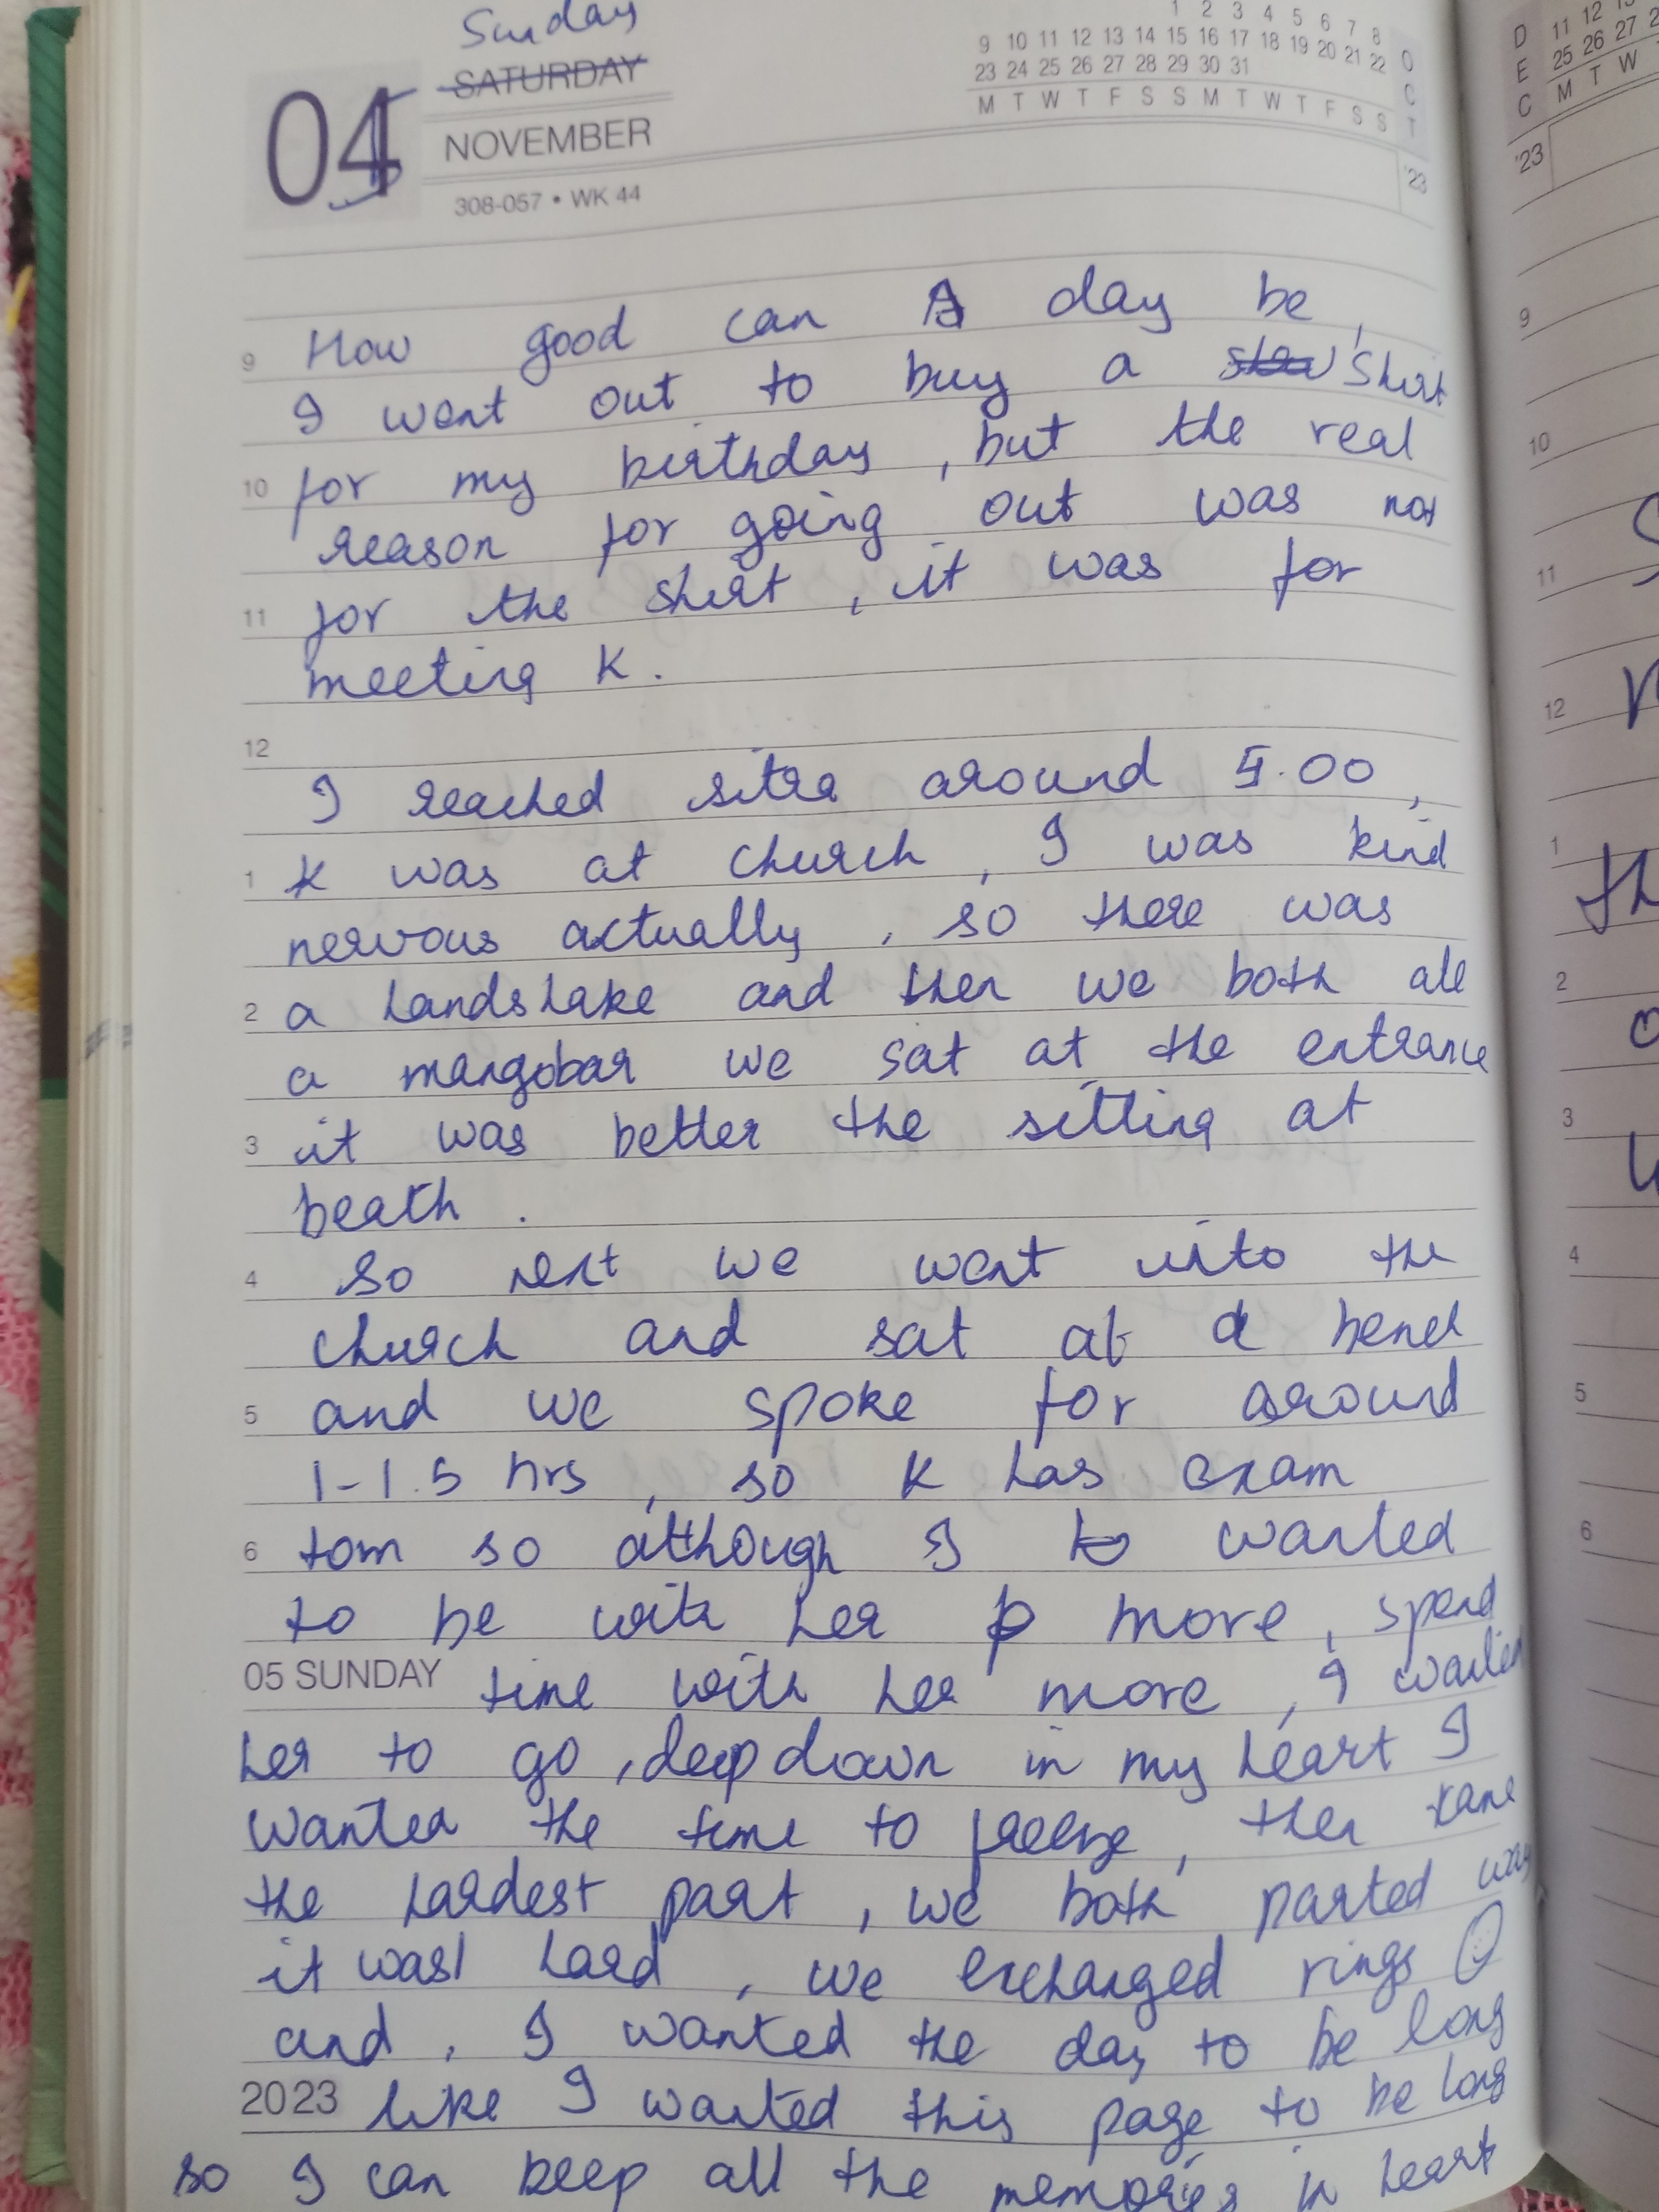 Sunday
SATURDAY
05
NOVEMBER
308-057 • WK 44
1 2 3 4 5 6 7 8
9 10 11 12 13 14 15 16 17 18 19 20 21 22
23 24 25 26 27 28 29 30 31
M T W T F S S M T W T F S S
OCT
'23
How good can A day be,
9 I went out to buy a shirt
for my birthday, but the real
10 reason for going out was not
11 for the shirt, it was for
meeting K.
12
I reached sitra around 5.00,
1 K was at church, I was kind
nervous actually, so there was
2 a handshake and then we both ate
a mangobar we sat at the entrance
3 it was better the sitting at
beach.
4 so next we went into the
church and sat at a bench
5 and we spoke for around
1-1.5 hrs, so K has exam
6 tom so although I to wanted
to be with her more, spend
05 SUNDAY time with her more, I wanted
her to go, deep down in my heart I
wanted the time to freeze, then came
the hardest part, we both parted way
it was hard, we exchanged rings
and, I wanted the day to be long
2023 like I wanted this page to be long
so I can keep all the memories in heart
DEC
11 12 13
25 26 27
M T W
'23
9
10
11
12
1
2
3
4
5
6